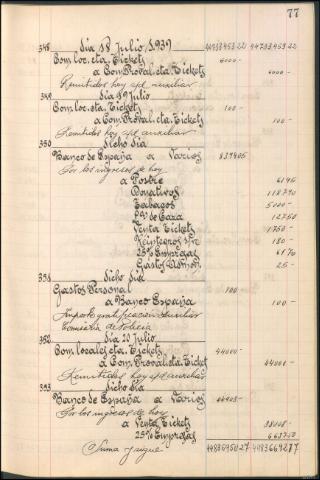 77
348 Día 18 Julio 1939 44938453 22 44703453 22
Com. loc. cta. Tickets 6000-
a Com. Proval. cta. Tickets 6000-
Remitidos hoy s/d auxiliar
349 Día 19 Julio
Com. loc. cta. Tickets 100-
a Com. Proval. cta. Tickets 100-
Remitidos hoy s/d auxiliar
350 Dicho Día
Banco de España a Varios
Por los ingresos de hoy
a Postre 6195
Donativos
Tabacos 5000-
Pº de Caza 12750
Venta Tickets 1750-
Reintegros 180-
25% Emprasas 6170
Gastos 25-
351 Dicho Día
Gastos Personal 100-
a Banco España 100-
Importe gratificación auxiliar
Comisaría de Policía
352 Día 20 Julio
Com. locales cta. Tickets 44000-
a Com. Proval. cta. Ticket
Remitidos hoy s/d auxiliar
Dicho Día
Banco de España a Varios
Por los ingresos de hoy
a Venta Tickets
25% Emprasas
Suma y sigue